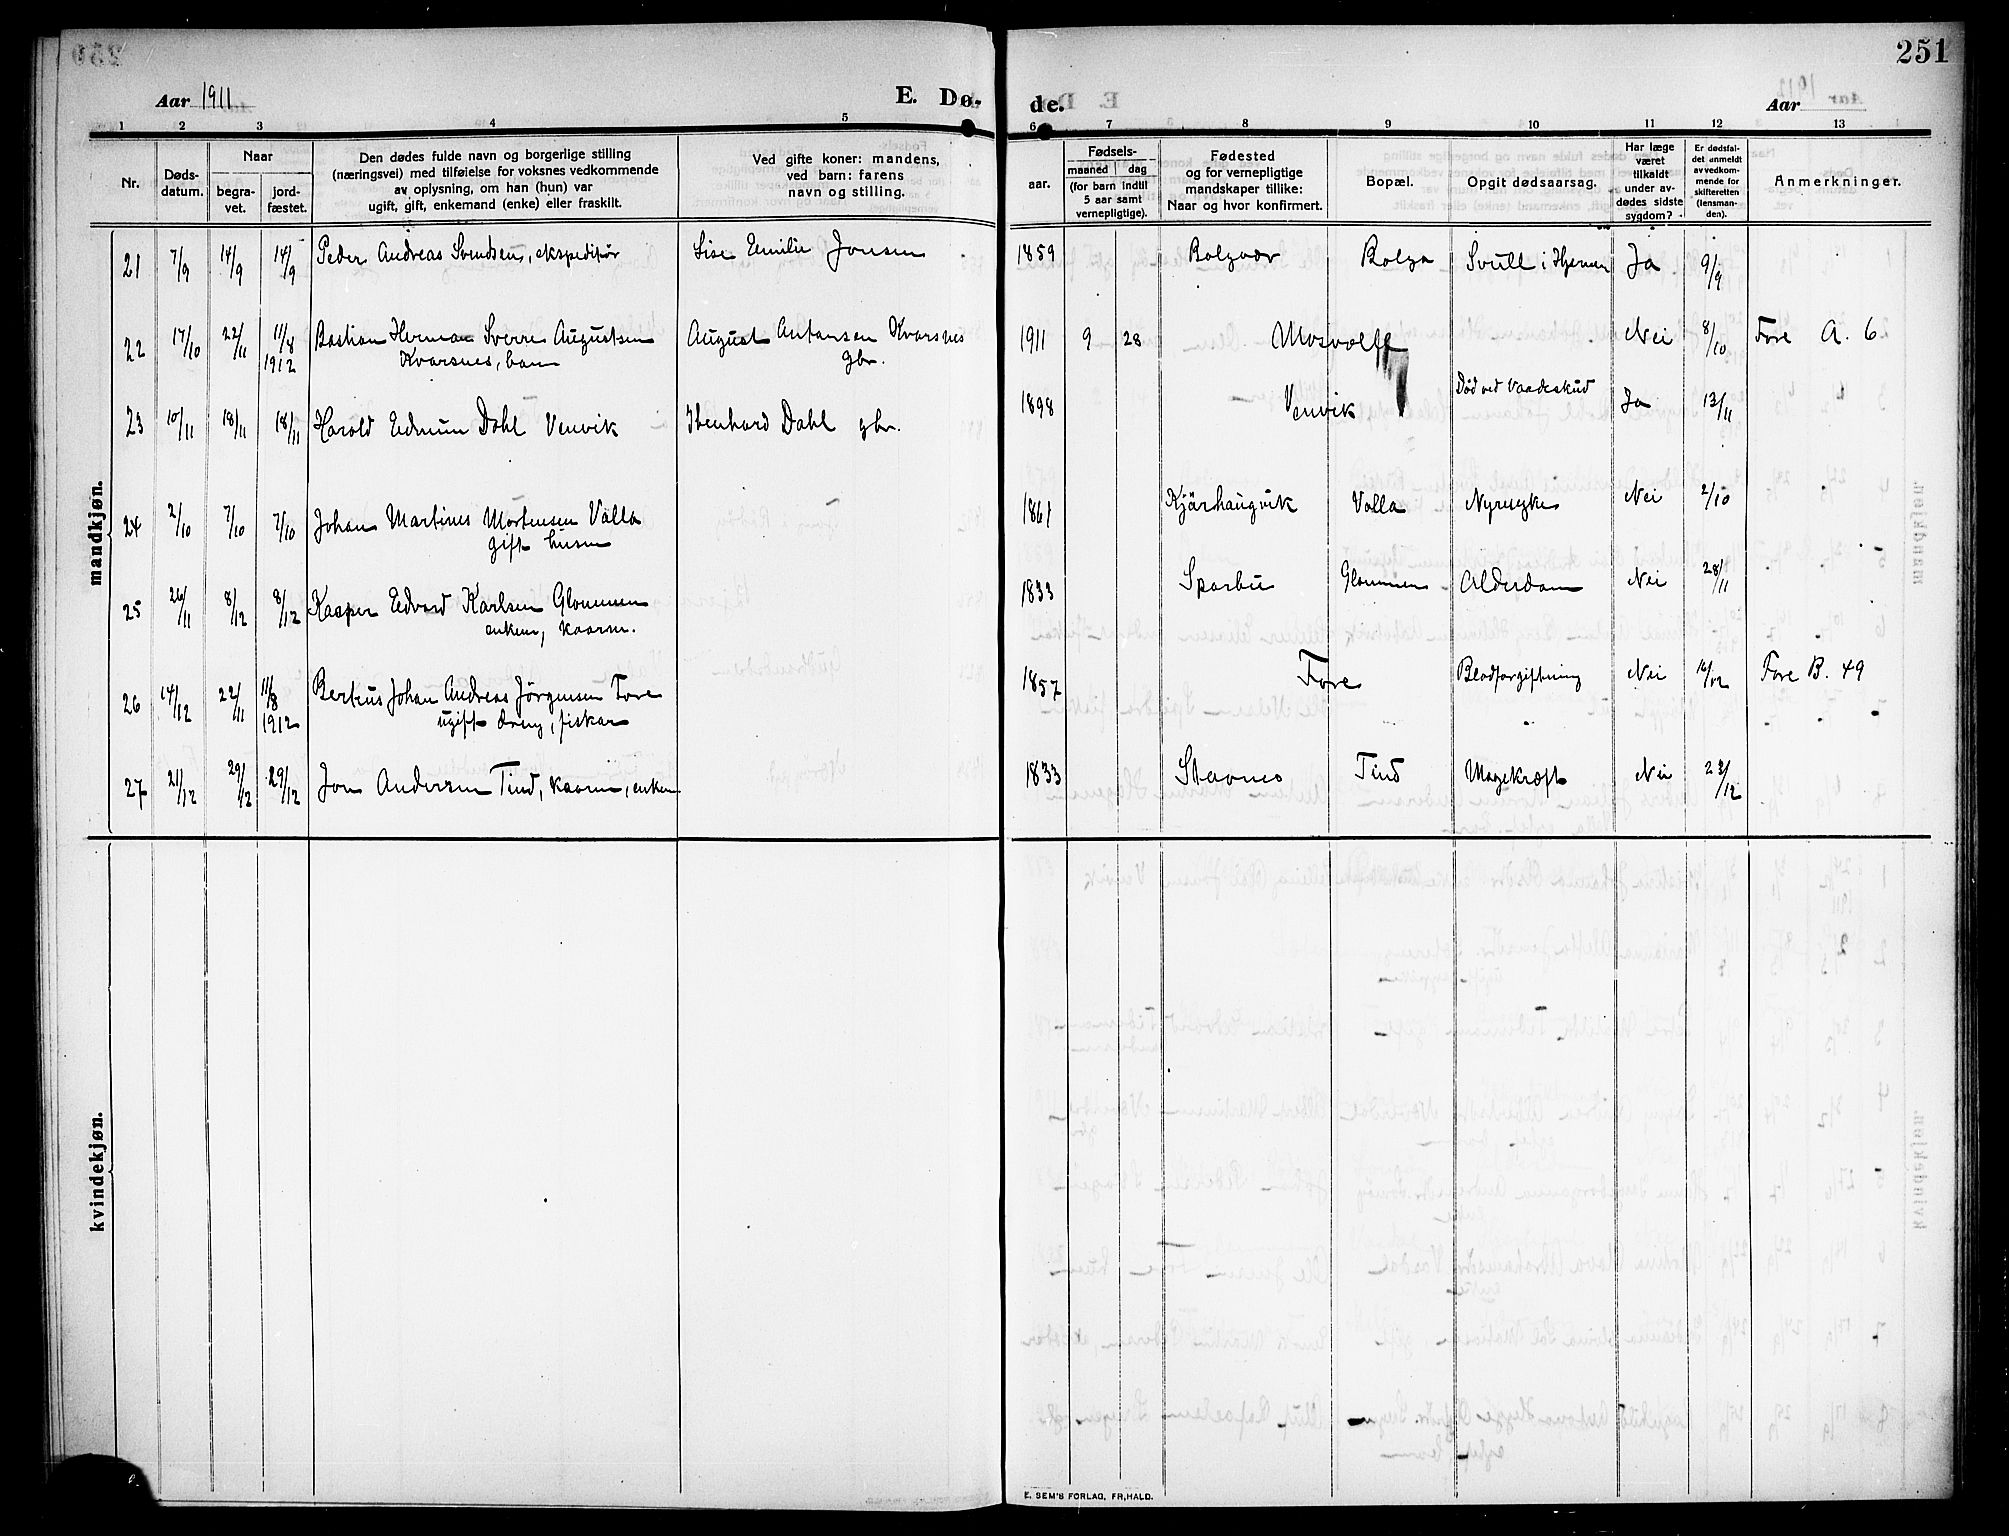 251
Aar 1911 E. Dø- de. Aar
1 2 3 4 5 6 7 8 9 10 11 12 13
Nr.
Døds-
datum.
Naar
begra-
vet.
jord-
fæstet.
Den dødes fulde navn og borgerlige stilling
(næringsvei) med tilføielse for voksnes vedkommende
av oplysning, om han (hun) var
ugift, gift, enkemand (enke) eller fraskilt.
Ved gifte koner: mandens,
ved barn: farens
navn og stilling.
Fødsels-
aar.
maaned dag
(for barn indtil
5 aar samt
vernepligtige).
Fødested
og for vernepligtige
mandskaper tillike:
Naar og hvor konfirmert.
Bopæl.
Opgit dødsaarsag.
Har læge
været
tilkaldt
under av-
dødes sidste
sygdom?
Er dødsfal-
det anmeldt
av vedkom-
mende for
skifteretten
(lensman-
den).
Anmerkninger.
mandkjøn.
21 7/9 14/9 14/9 Peder Andreas Svendsen, ekspeditør Lise Emilie Jonsen 1859 Bolgvær Bolga Svull i Hjernen Ja 9/9
22 17/10 22/11 11/8 1912 Bastian Herman Sverre Augustsen August Antonsen Kvarsnes 1911 9 28 Mosvolll Nei 8/10 Fore A. 6
Kvarsnes, barn gbr.
23 10/11 18/11 18/11 Harold Edmun Dahl Venvik Ibenhard Dahl gbr. 1898 Venvik Død ved Vaadeskud Ja 13/11
24 2/10 7/10 7/10 Johan Martines Mortensen Valla 1861 Kjærhaugvik Valla Nyresyke Nei 2/10
gift husm
25 26/11 8/12 8/12 Kasper Edvard Karlsen Glommen 1833 Sparbu Glommen Alderdom Nei 28/11
enkem, kaarm.
26 14/12 22/11 11/8 1912 Bertéus Johan Andreas Jörgensen Fore 1857 Fore Blodforgiftning Nei 16/12 Fore B. 49
ugift dreng, fisker
27 21/12 29/12 29/12 Jon Andersen Tind, kaarm, enkem 1833 Stavnes Tind Mavekræft Nei 23/12
kvindekjøn.
E. SEM'S FORLAG, FR,HALD.